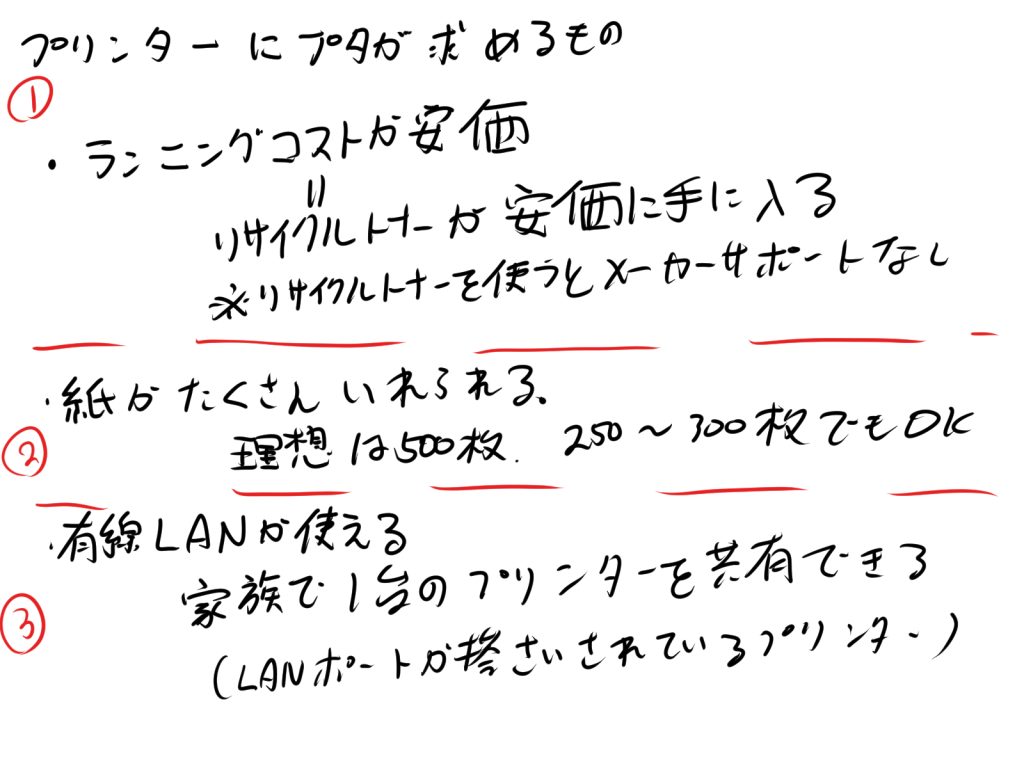 プリンターにブタが求めるもの
①
・ランニングコストが安価
=
リサイクルトナーが安価に手に入る
※リサイクルトナーを使うとメーカーサポートなし
・紙がたくさんいれられる。
②
理想は500枚. 250〜300枚でもOK
・有線LANが使える
家族で1台のプリンターを共有できる
③
(LANポートが搭さいされているプリンター)